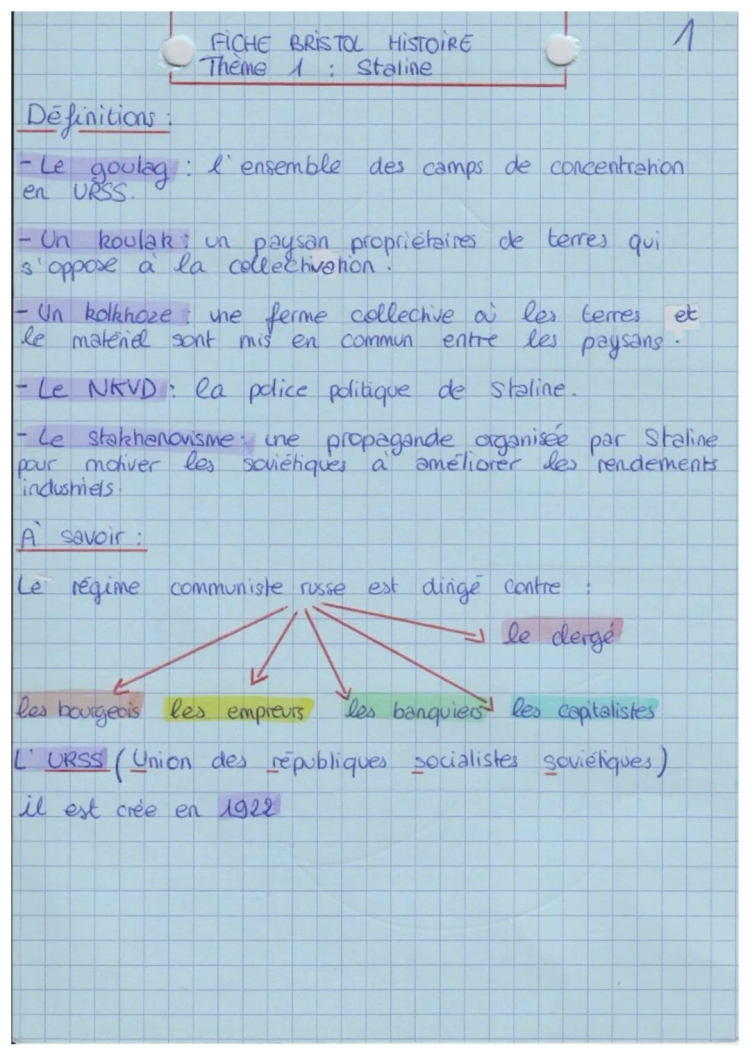 1
FICHE BRISTOL HISTOIRE
Thème 1 : Staline
Définitions :
- Le goulag : l'ensemble des camps de concentration
en URSS.
- Un koulak : un paysan propriétaires de terres qui
s'oppose à la collectivation.
- Un kolkhoze : une ferme collective où les terres et
le matériel sont mis en commun entre les paysans.
- Le NKVD : la police politique de Staline.
- Le stakhanovisme : une propagande organisée par Staline
pour motiver les soviétiques à améliorer les rendements
industriels.
À savoir :
Le régime communiste russe est dirigé contre :
le clergé
les bourgeois les empreurs les banquiers les capitalistes
L'URSS (Union des républiques socialistes soviétiques)
il est crée en 1922